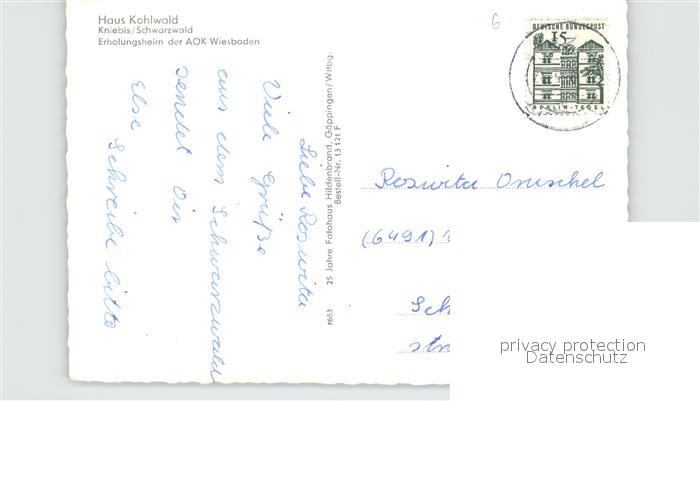 Haus Kohlwald
Kniebis/Schwarzwald
Erholungsheim der AOK Wiesbaden
Liebe Roswita
Viele Grüße
aus dem Schwarzwald
sendet Dir
Else
Schreibe bitte
r683 25 Jahre Fotohaus Hildenbrand, Göppingen/Wttbg.
Bestell-Nr. 13121 F
6
DEUTSCHE BUNDESPOST
15
BERLIN-TEGEL
Roswita
(6491)
Sch
str
privacy protection
Datenschutz